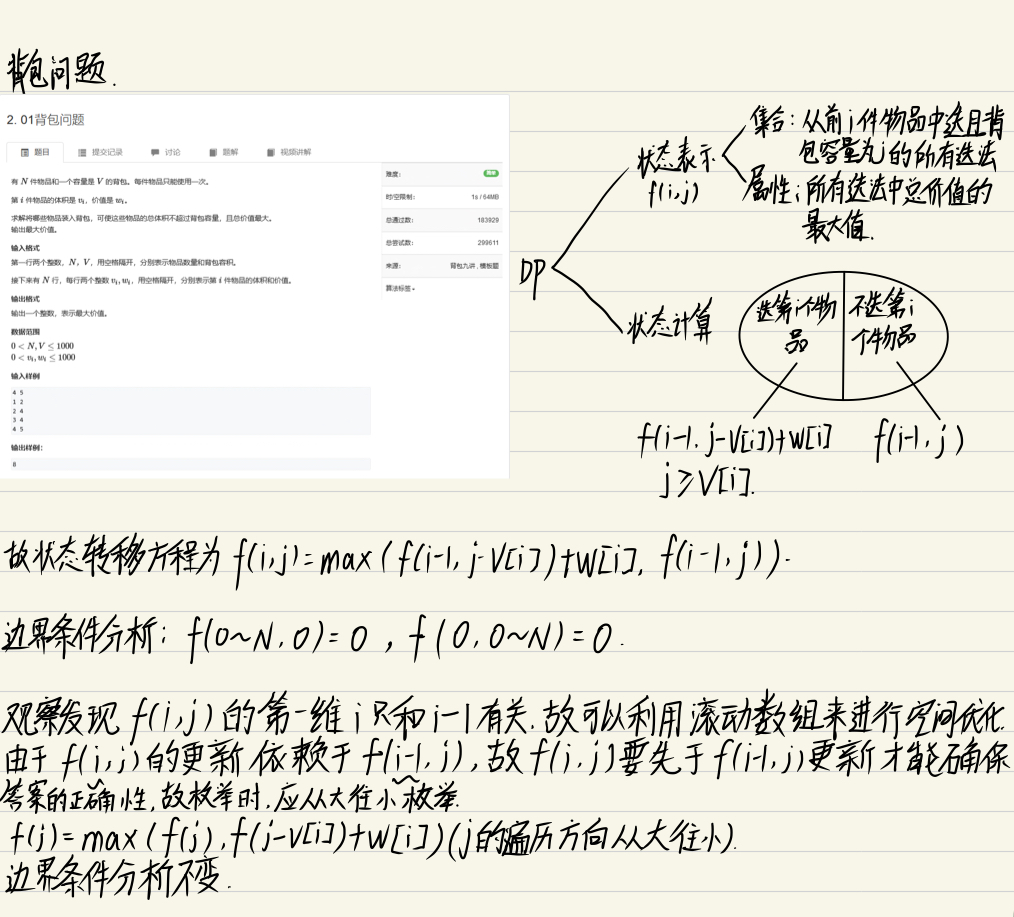 背包问题.
2. 01背包问题
题目 提交记录 讨论 题解 视频讲解
有 N 件物品和一个容量是 V 的背包。每件物品只能使用一次。
第 i 件物品的体积是 vᵢ，价值是 wᵢ。
求解将哪些物品装入背包，可使这些物品的总体积不超过背包容量，且总价值最大。
输出最大价值。
输入格式
第一行两个整数，N，V，用空格隔开，分别表示物品数量和背包容积。
接下来有 N 行，每行两个整数 vᵢ, wᵢ，用空格隔开，分别表示第 i 件物品的体积和价值。
输出格式
输出一个整数，表示最大价值。
数据范围
0 < N, V ≤ 1000
0 < vᵢ, wᵢ ≤ 1000
输入样例
4 5
1 2
2 4
3 4
4 5
输出样例：
8
难度： 简单
时/空限制： 1s / 64MB
总通过数： 183929
总尝试数： 299611
来源： 背包九讲 , 模板题
算法标签
DP
状态表示
f(i,j)
集合: 从前i件物品中选且背
包容量为j的所有选法
属性: 所有选法中总价值的
最大值.
状态计算
选第i个物
品
不选第i
个物品
f(i-1, j-V[i])+W[i]
j≥V[i].
f(i-1, j)
故状态转移方程为 f(i,j)=max(f(i-1, j-V[i])+W[i], f(i-1, j)).
边界条件分析: f(0~N, 0)=0 , f(0, 0~N)=0.
观察发现 f(i,j)的第一维i只和i-1有关.故可以利用滚动数组来进行空间优化.
由于 f(i,j)的更新依赖于 f(i-1, j),故 f(i,j)要先于 f(i-1,j)更新才能确保
答案的正确性,故枚举时,应从大往小枚举.
f(j)=max(f(j),f(j-V[i])+W[i])(j的遍历方向从大往小).
边界条件分析不变.